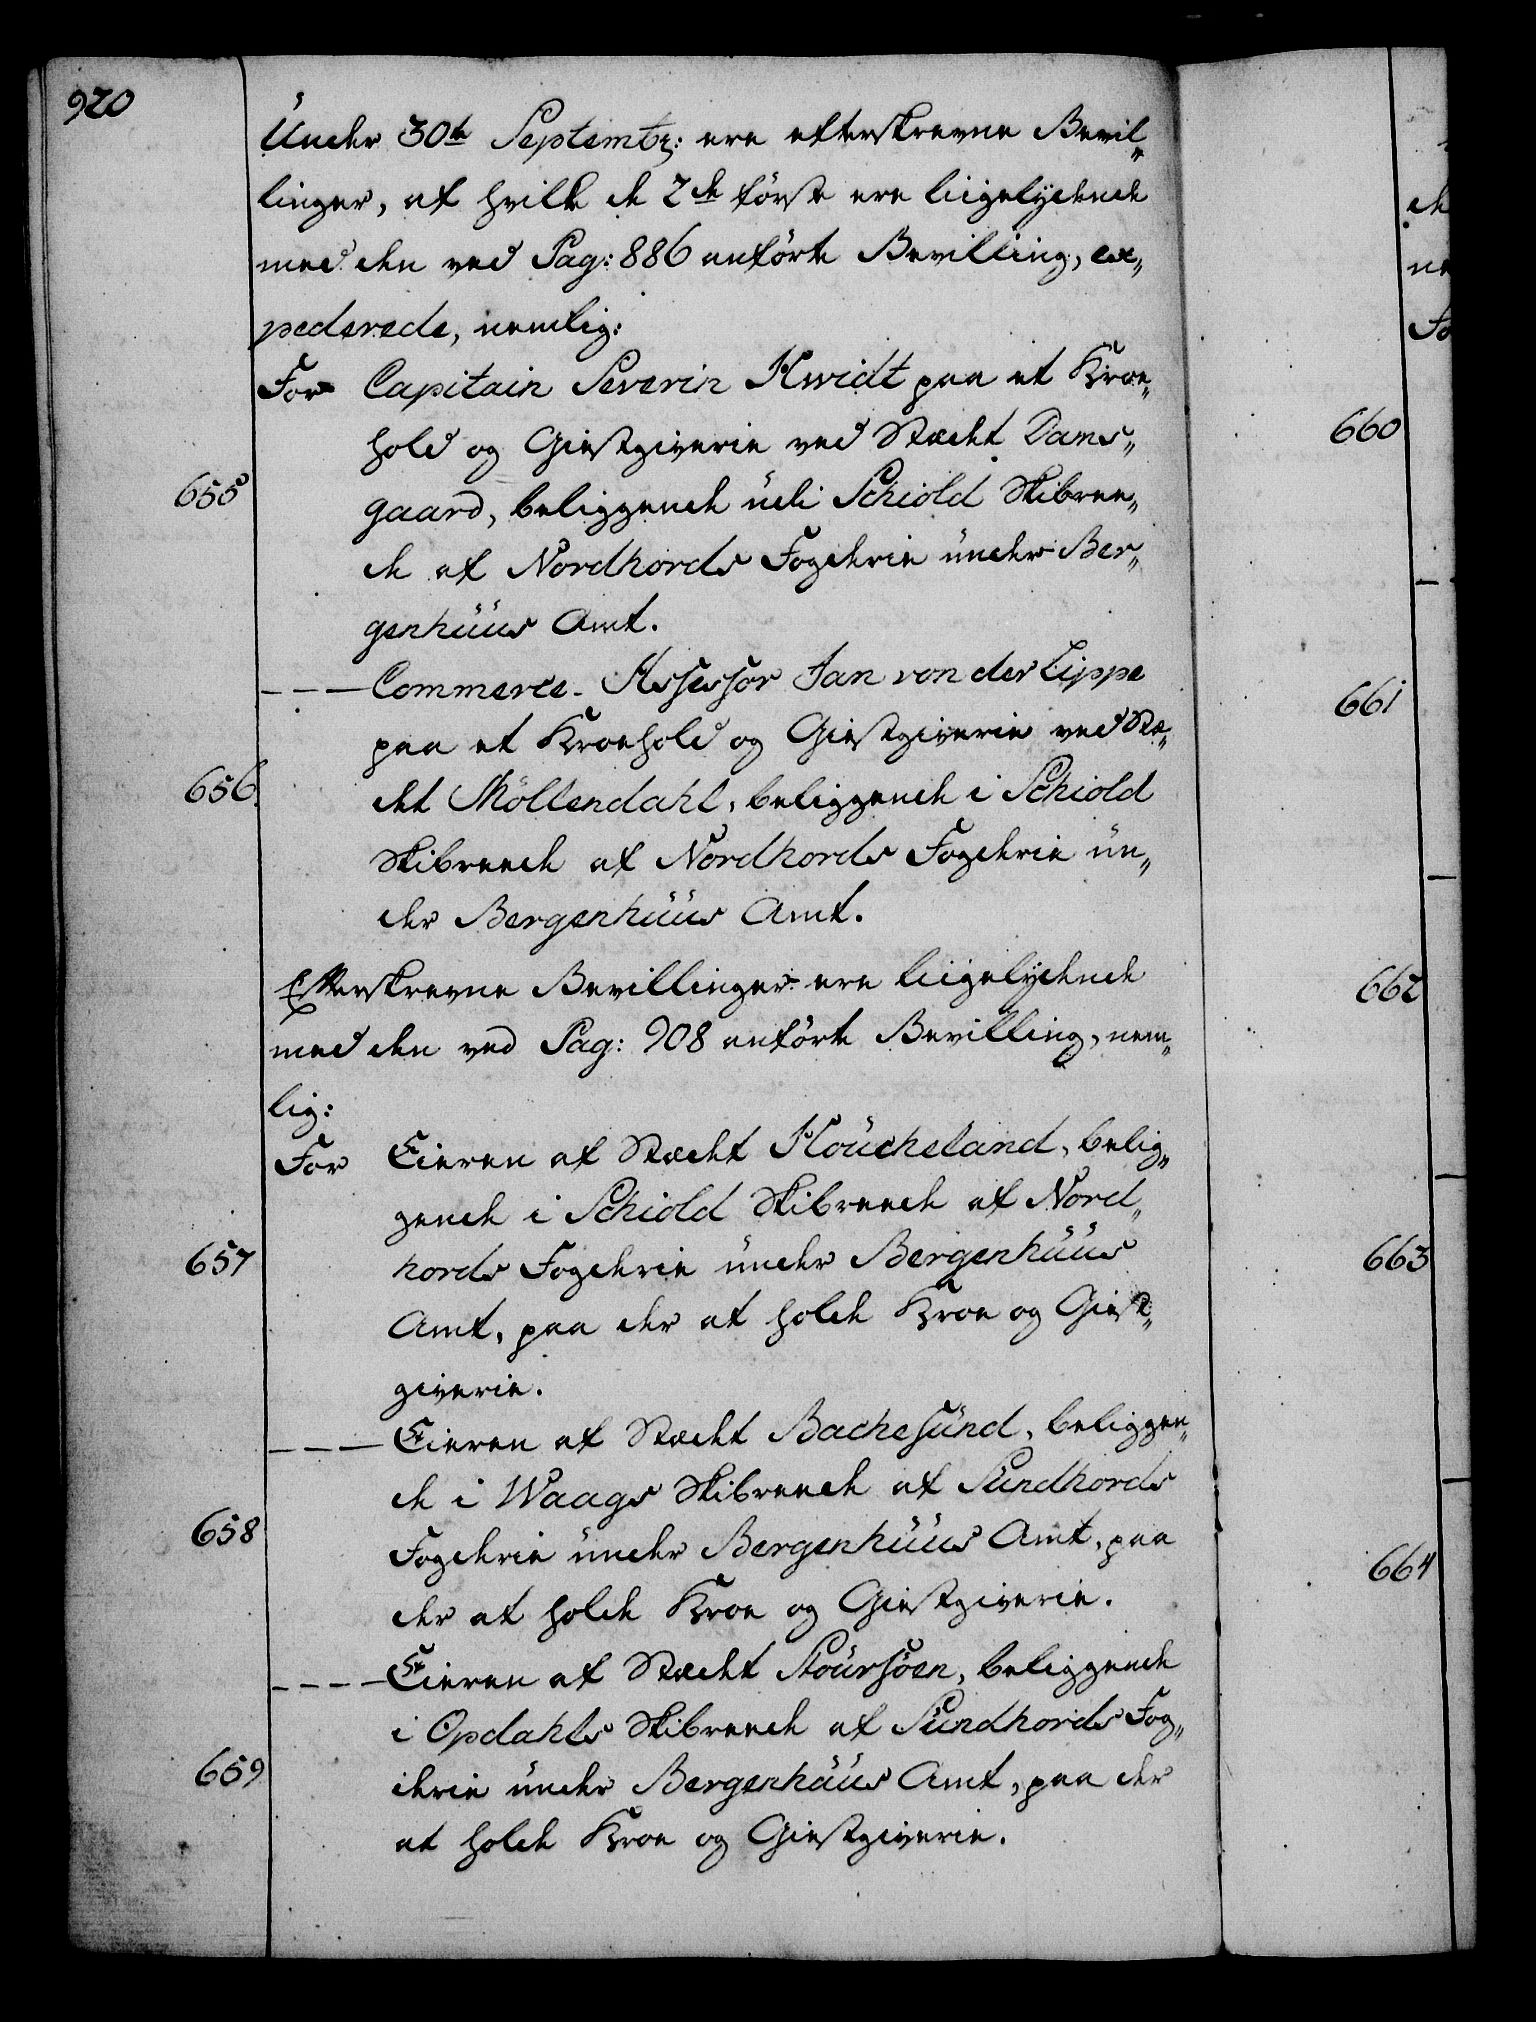 920
Under 30te Septembr: ere efterskrevne Bevil„
linger, af hvilke de 2de første ere liigelydende
med den ved Pag: 886 anførte Bevilling, ex„
pederede, nemlig:
For Capitain Severin Hvidt paa et Kroe„
hold og Giestgiverie ved Stædet Dams„
655
gaard, beliggende udi Schiold Skibree„
de af Nordhords Fogderie under Ber„
genhuus Amt.
--- Commerce-Assessor Jan von der Lippe
paa et Kroehold og Giestgiverie ved Stæ„
656.
det Möllendahl, beliggende i Schiold
Skibreede af Nordhords Fogderie un„
der Bergenhuus Amt.
Efterskrevne Bevillinger ere liigelydende
med den ved Pag: 908 anførte Bevilling, nem„
lig:
For Eieren af Stædet Houcheland, belig„
gende i Schiold Skibreede af Nord„
657
hords Fogderie under Bergenhuus
Amt, paa der at holde Kroe og Giest„
giverie.
--- Eieren af Stædet Bachesund, beliggen„
de i Waags Skibreede af Sundhords
658
Fogderie under Bergenhuus Amt, paa
der at holde Kroe og Giestgiverie.
---- Eieren af Stædet Stoursøen, beliggende
i Opdahls Skibreede af Sundhords Fog„
659
derie under Bergenhuus Amt, paa der
at holde Kroe og Giestgiverie.
660
661
662
663
664